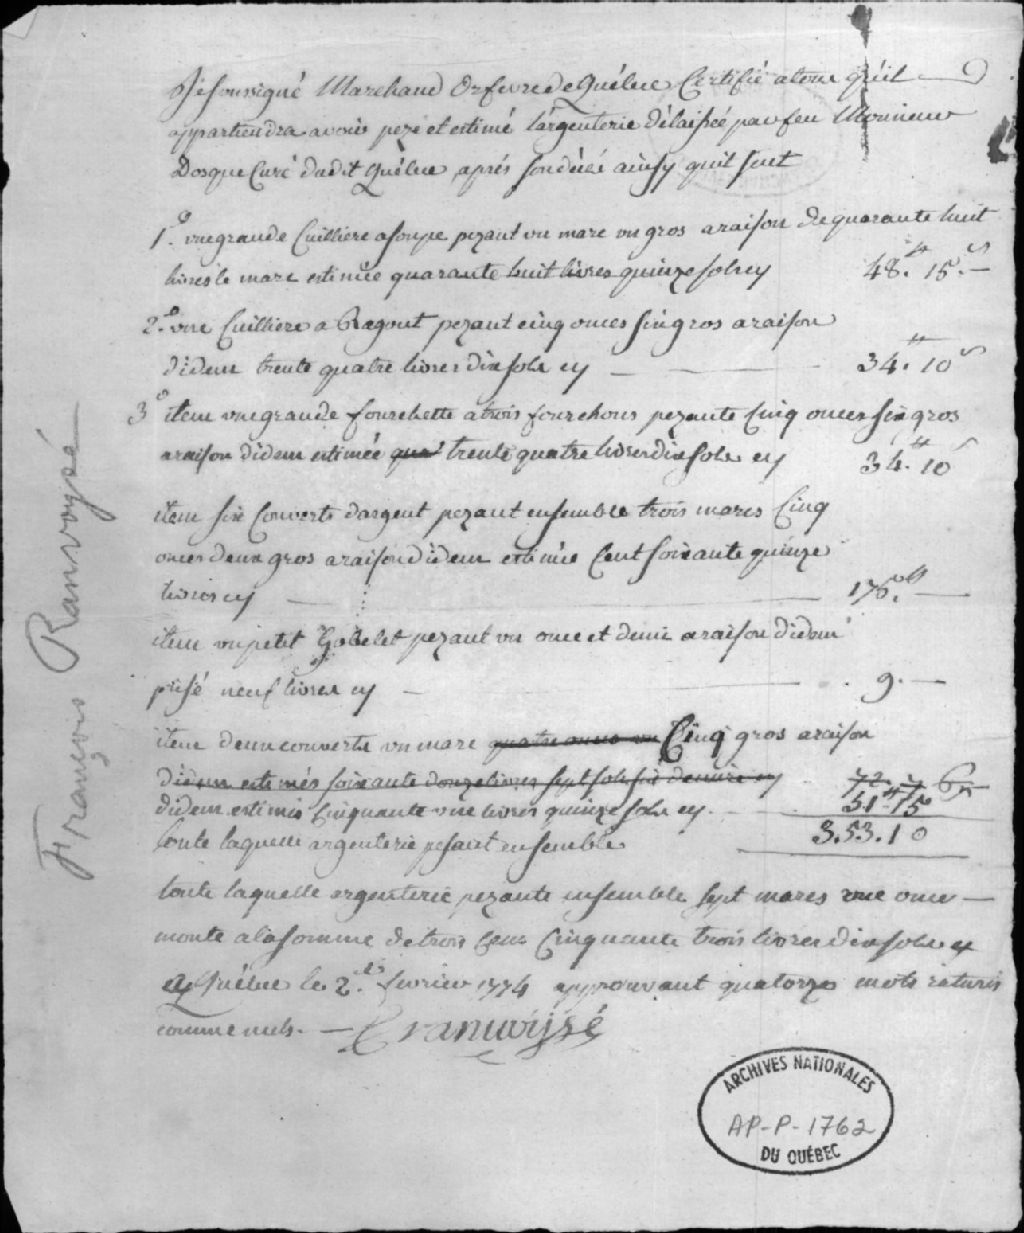 Je soussigné Marchand Orfevre de Québec Certifié a tous qu'il
appartiendra avoir pezé et estimé l'argenterie délaissée par feu Monsieur
Dosque Curé dudit Québec aprés son décés ainsy qu'il suit
1.° une grande Cuilliere a soupe pezant un marc un gros a raison de quarante huit
livres le marc estimée quarante huit livres quinze sols cy 48.tt 15.s —
2.° une Cuilliere a Ragout pezant cinq onces six gros a raison
d'idem trente quatre livres dix sols cy — — — 34.tt 10s
3° item une grande fourchette a trois fourchons pezante Cinq onces six gros
a raison d'idem estimée qua trente quatre livres dix sols cy 34.tt 10s
item six Couverts d'argent pezant ensemble trois marcs Cinq
onces deux gros a raison d'idem estimés Cent soixante quinze
livres cy — 175.tt —
item un petit Gobelet pezant un once et demie a raison d'idem
prisé neuf livres cy — 9. —
item deux couverts un marc quatre onces un Cinq gros a raison
d'idem estimés soixante douze livres sept sols six deniers cy 72. 7. 6
d'idem estimés Cinquante une livres quinze sols cy. 51.tt 15
toute laquelle argenterie pesant ensemble 353.10
toute laquelle argenterie pezante ensemble sept marcs une once —
monte a la somme de trois Cens Cinquante trois livres dix sols cy
a Québec le 2. fevrier 1774 approuvant quatorze mots raturés
comme nuls. — F ranvoyzé
François Ranvoyzé
ARCHIVES NATIONALES
AP-P-1762
DU QUÉBEC